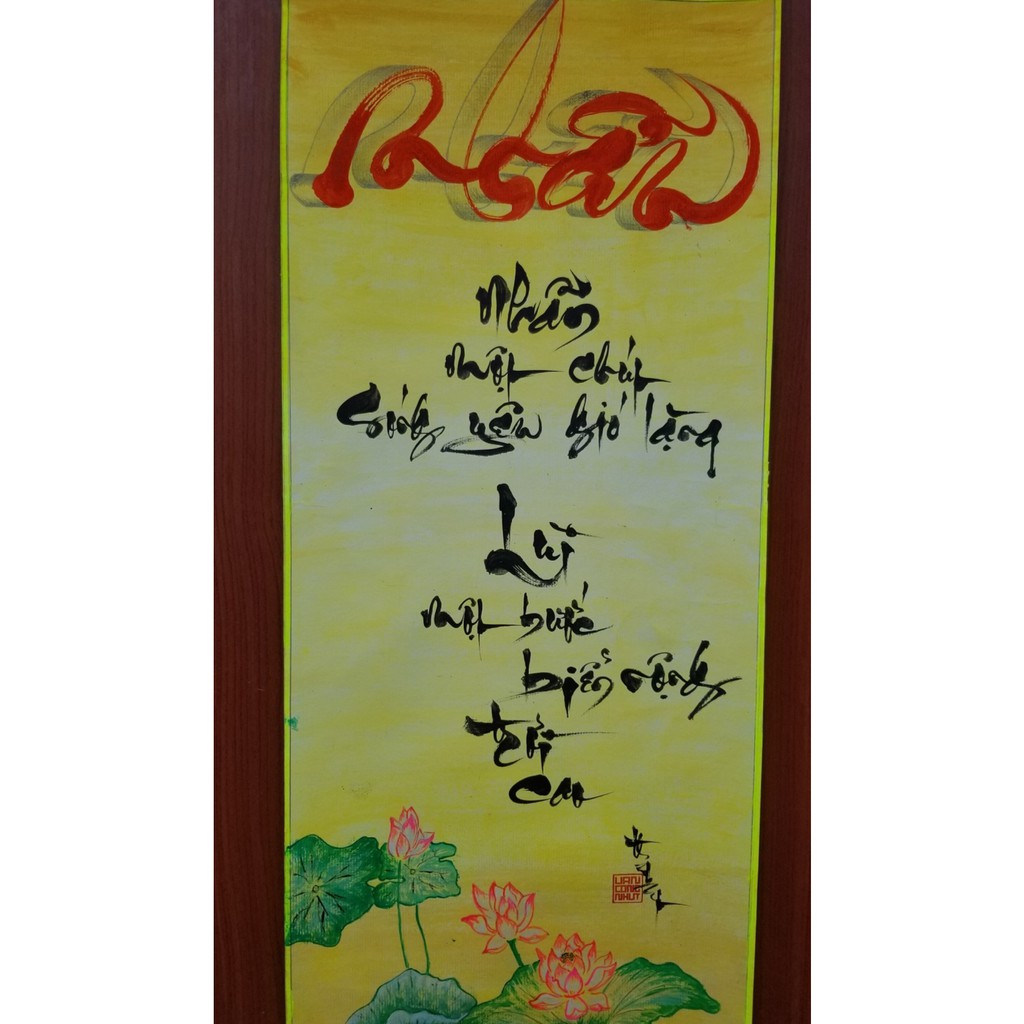 Nhẫn
Nhẫn
một chút
Sóng yên gió lặng
Lùi
một bước
biển rộng
trời
cao
VĂN
CÔNG
NHỰT